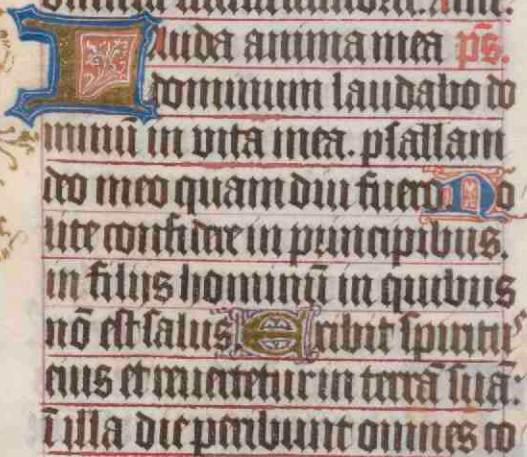 Lauda anima mea p̄s.
dominum laudabo do
minū in vita mea. psallam
deo meo quam diu fuero No
lite confidere in principibus.
in filijs hominū in quibus
nō est salus Exibit spiritus
eius et revertetur in terrā suā:
ī illa die peribunt omnes co